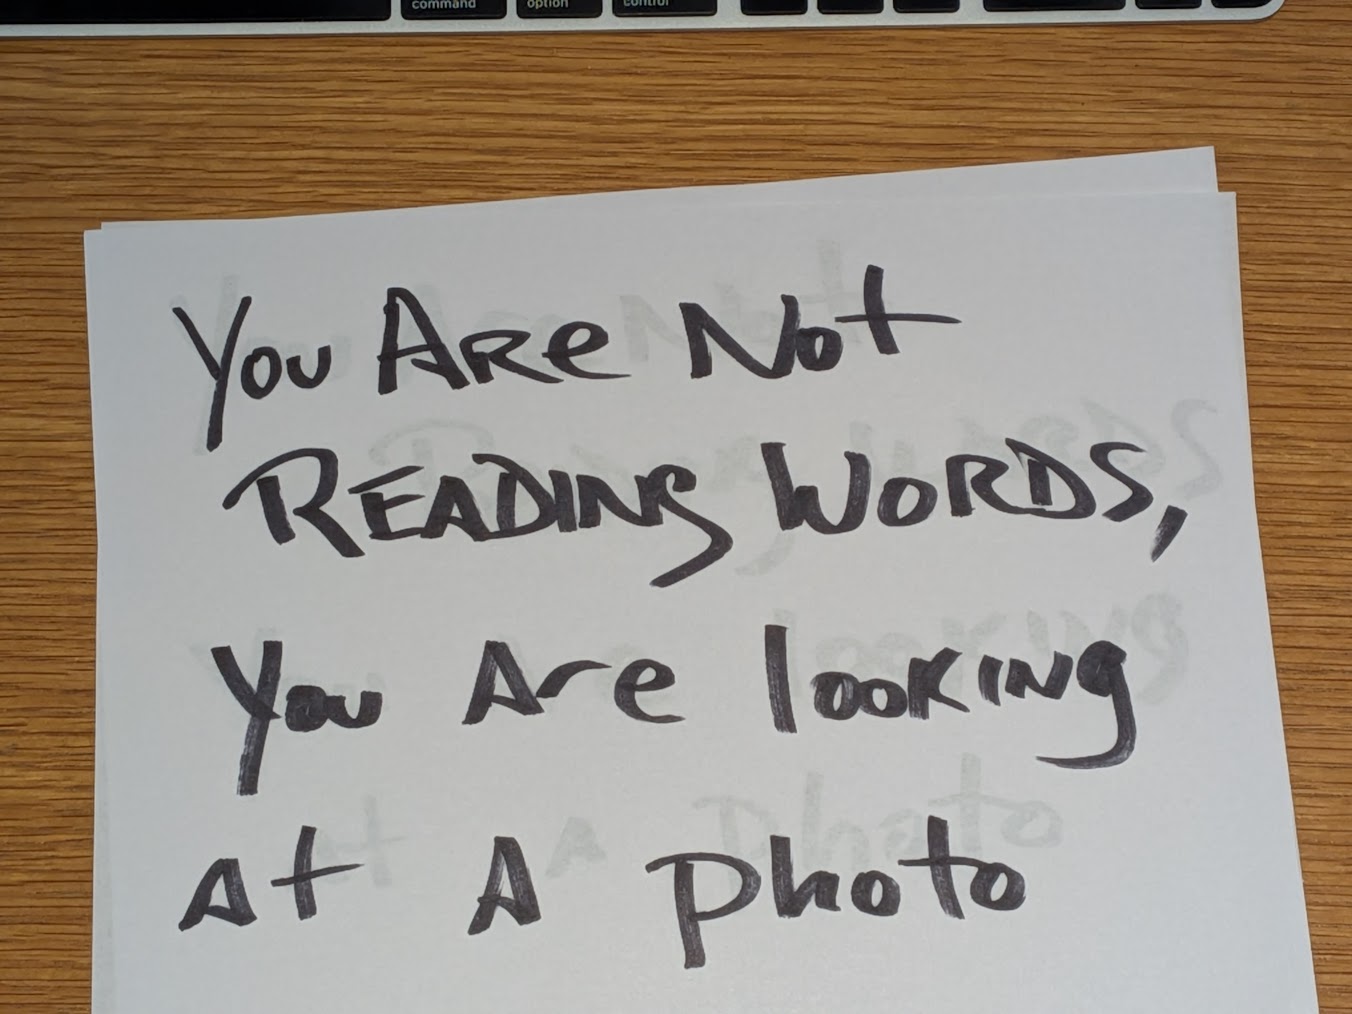 command option control
You Are Not
READING WORDS,
You Are looking
At A photo